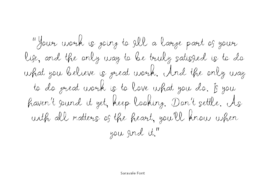 "Your work is going to fill a large part of your
life, and the only way to be truly satisfied is to do
what you believe is great work. And the only way
to do great work is to love what you do. If you
haven't found it yet, keep looking. Don't settle. As
with all matters of the heart, you'll know when
you find it."